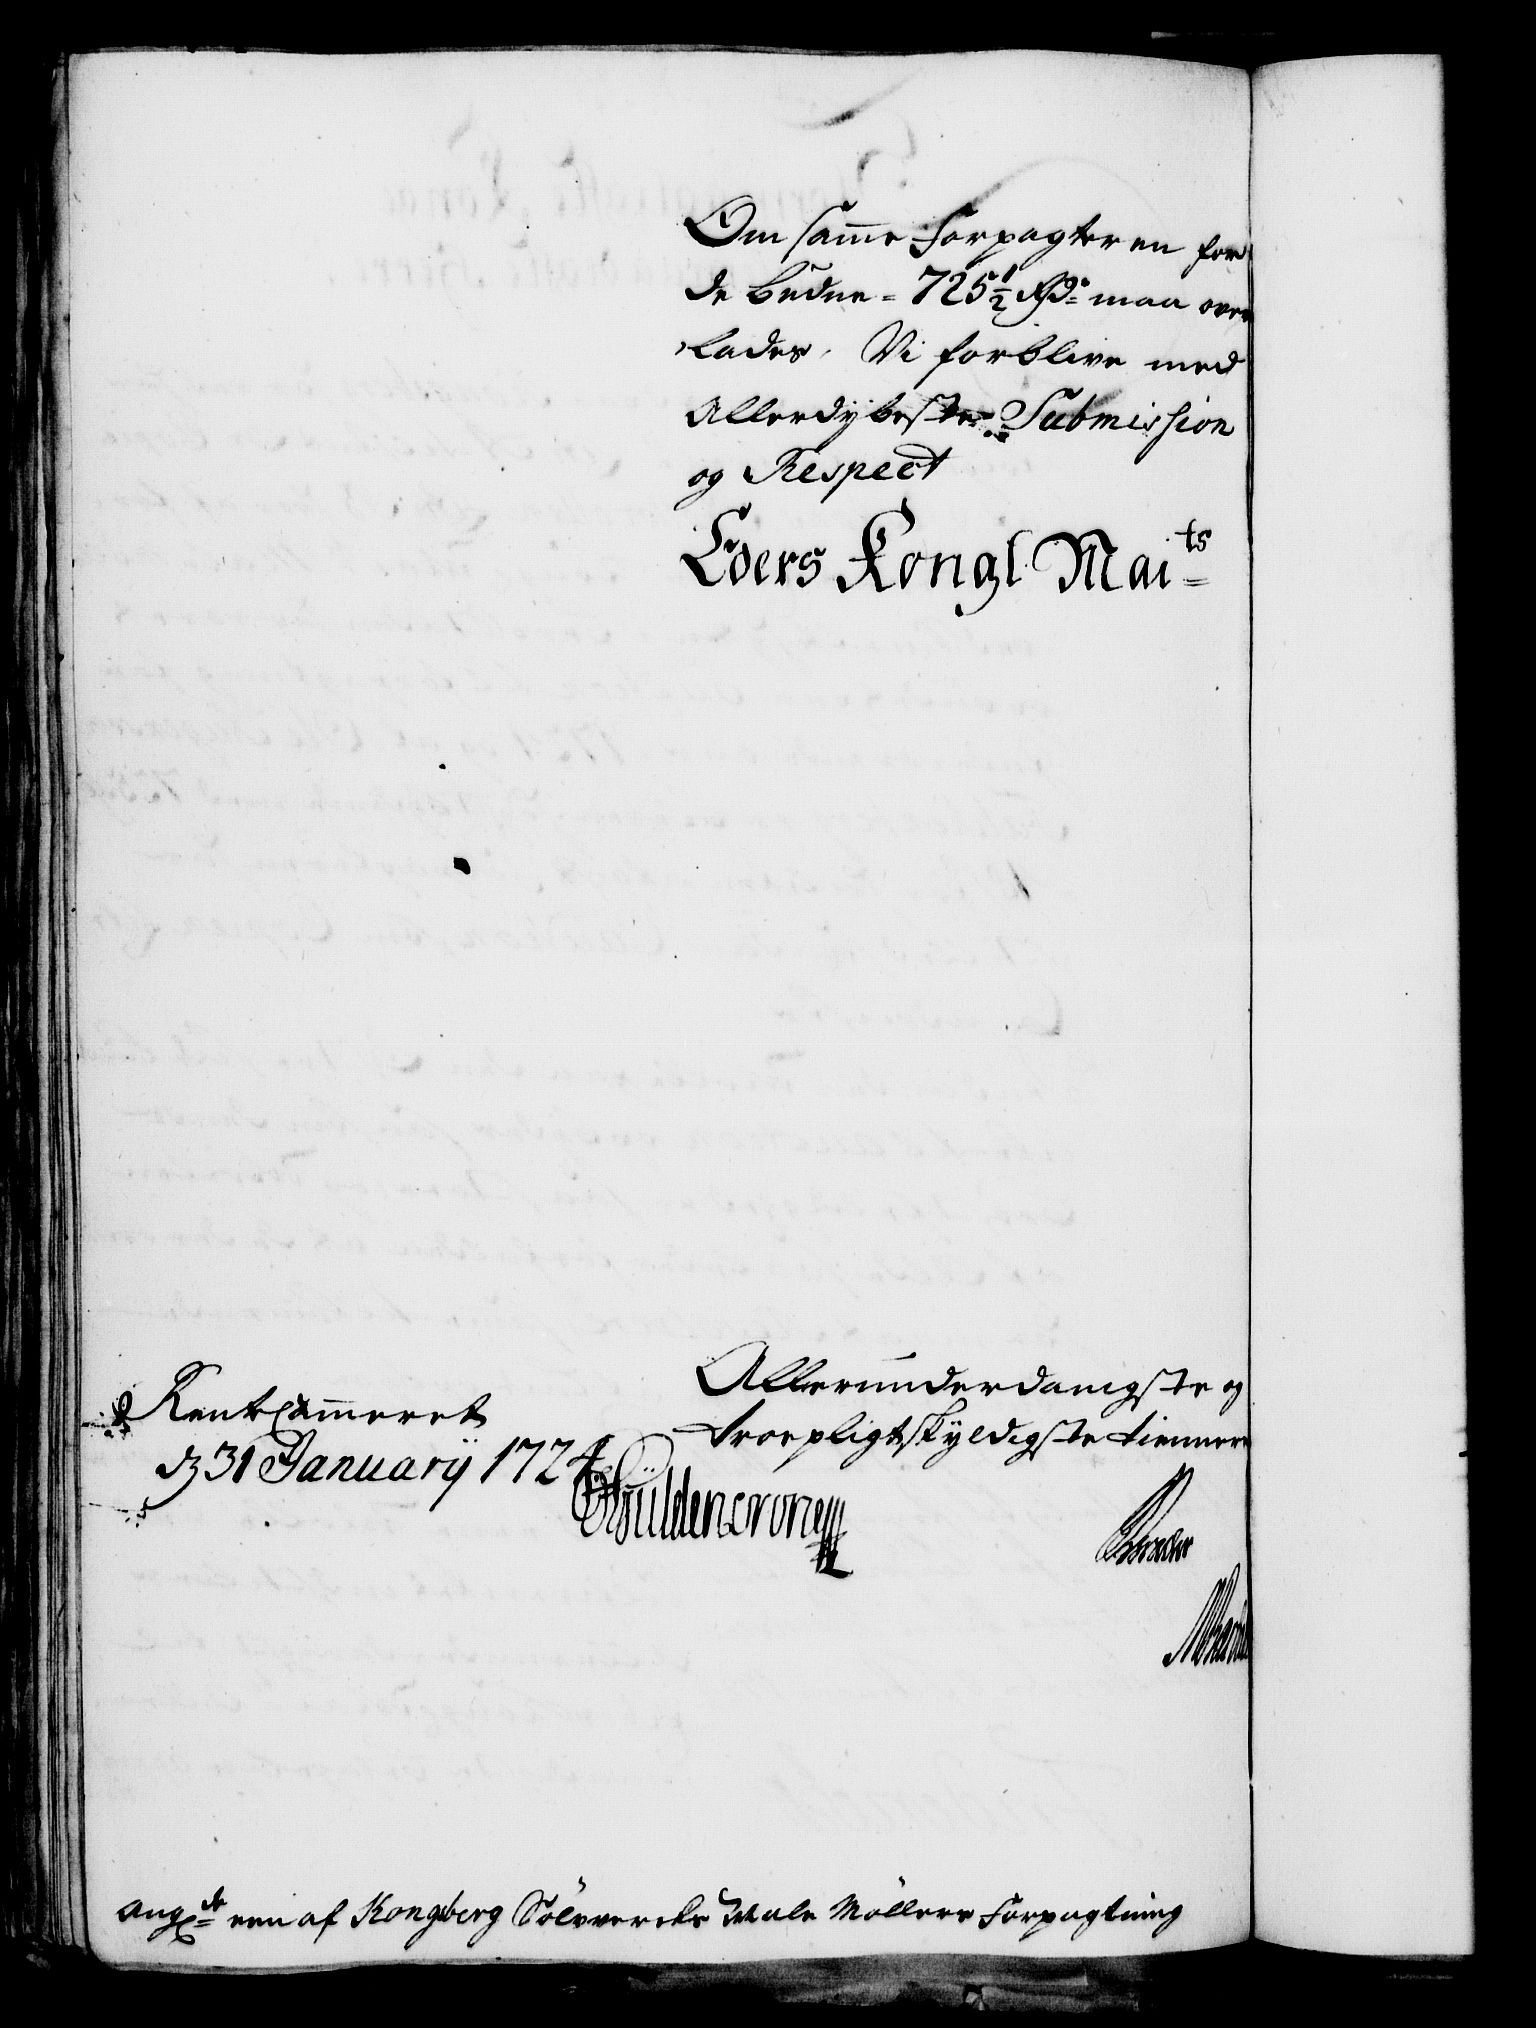 Om samme Forpagteren for
de budne = 725½ Rdr maa over
lades, Vi forblive med
Allerdybeste Submission
og Respect
Eders Kongl Mai<sup>ts</sup>=
Allerunderdanigste og
troepligtskyldigste tienner
RentCammeret
dz 31 January 1724
Güldencrone
ang<sup>de</sup> een af Kongsberg Sölvvercks Male Möllers Forpagtning